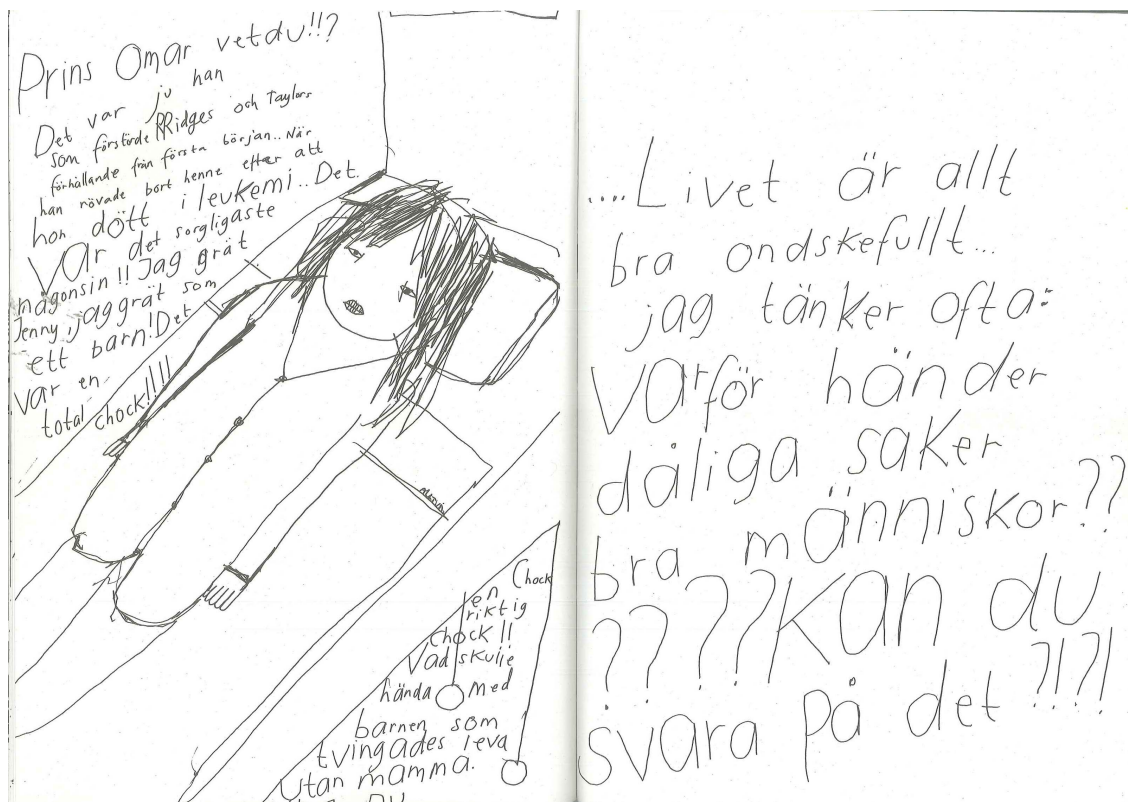 Prins Omar vet du!!?
Det var ju han
som förstörde Ridges och Taylors
förhållande från första början.. När
han rövade bort henne efter att
hon dött i leukemi.. Det
var det sorgligaste
någonsin!! Jag grät
Jenny, jag grät som
ett barn! Det
var en
total chock!!!!
Chock
en
riktig
chock!!
Vad skulle
hända med
barnen som
tvingades leva
utan mamma.
....Livet är allt
bra ondskefullt...
jag tänker ofta:
varför händer
dåliga saker
bra människor??
????Kan du
svara på det?!?!